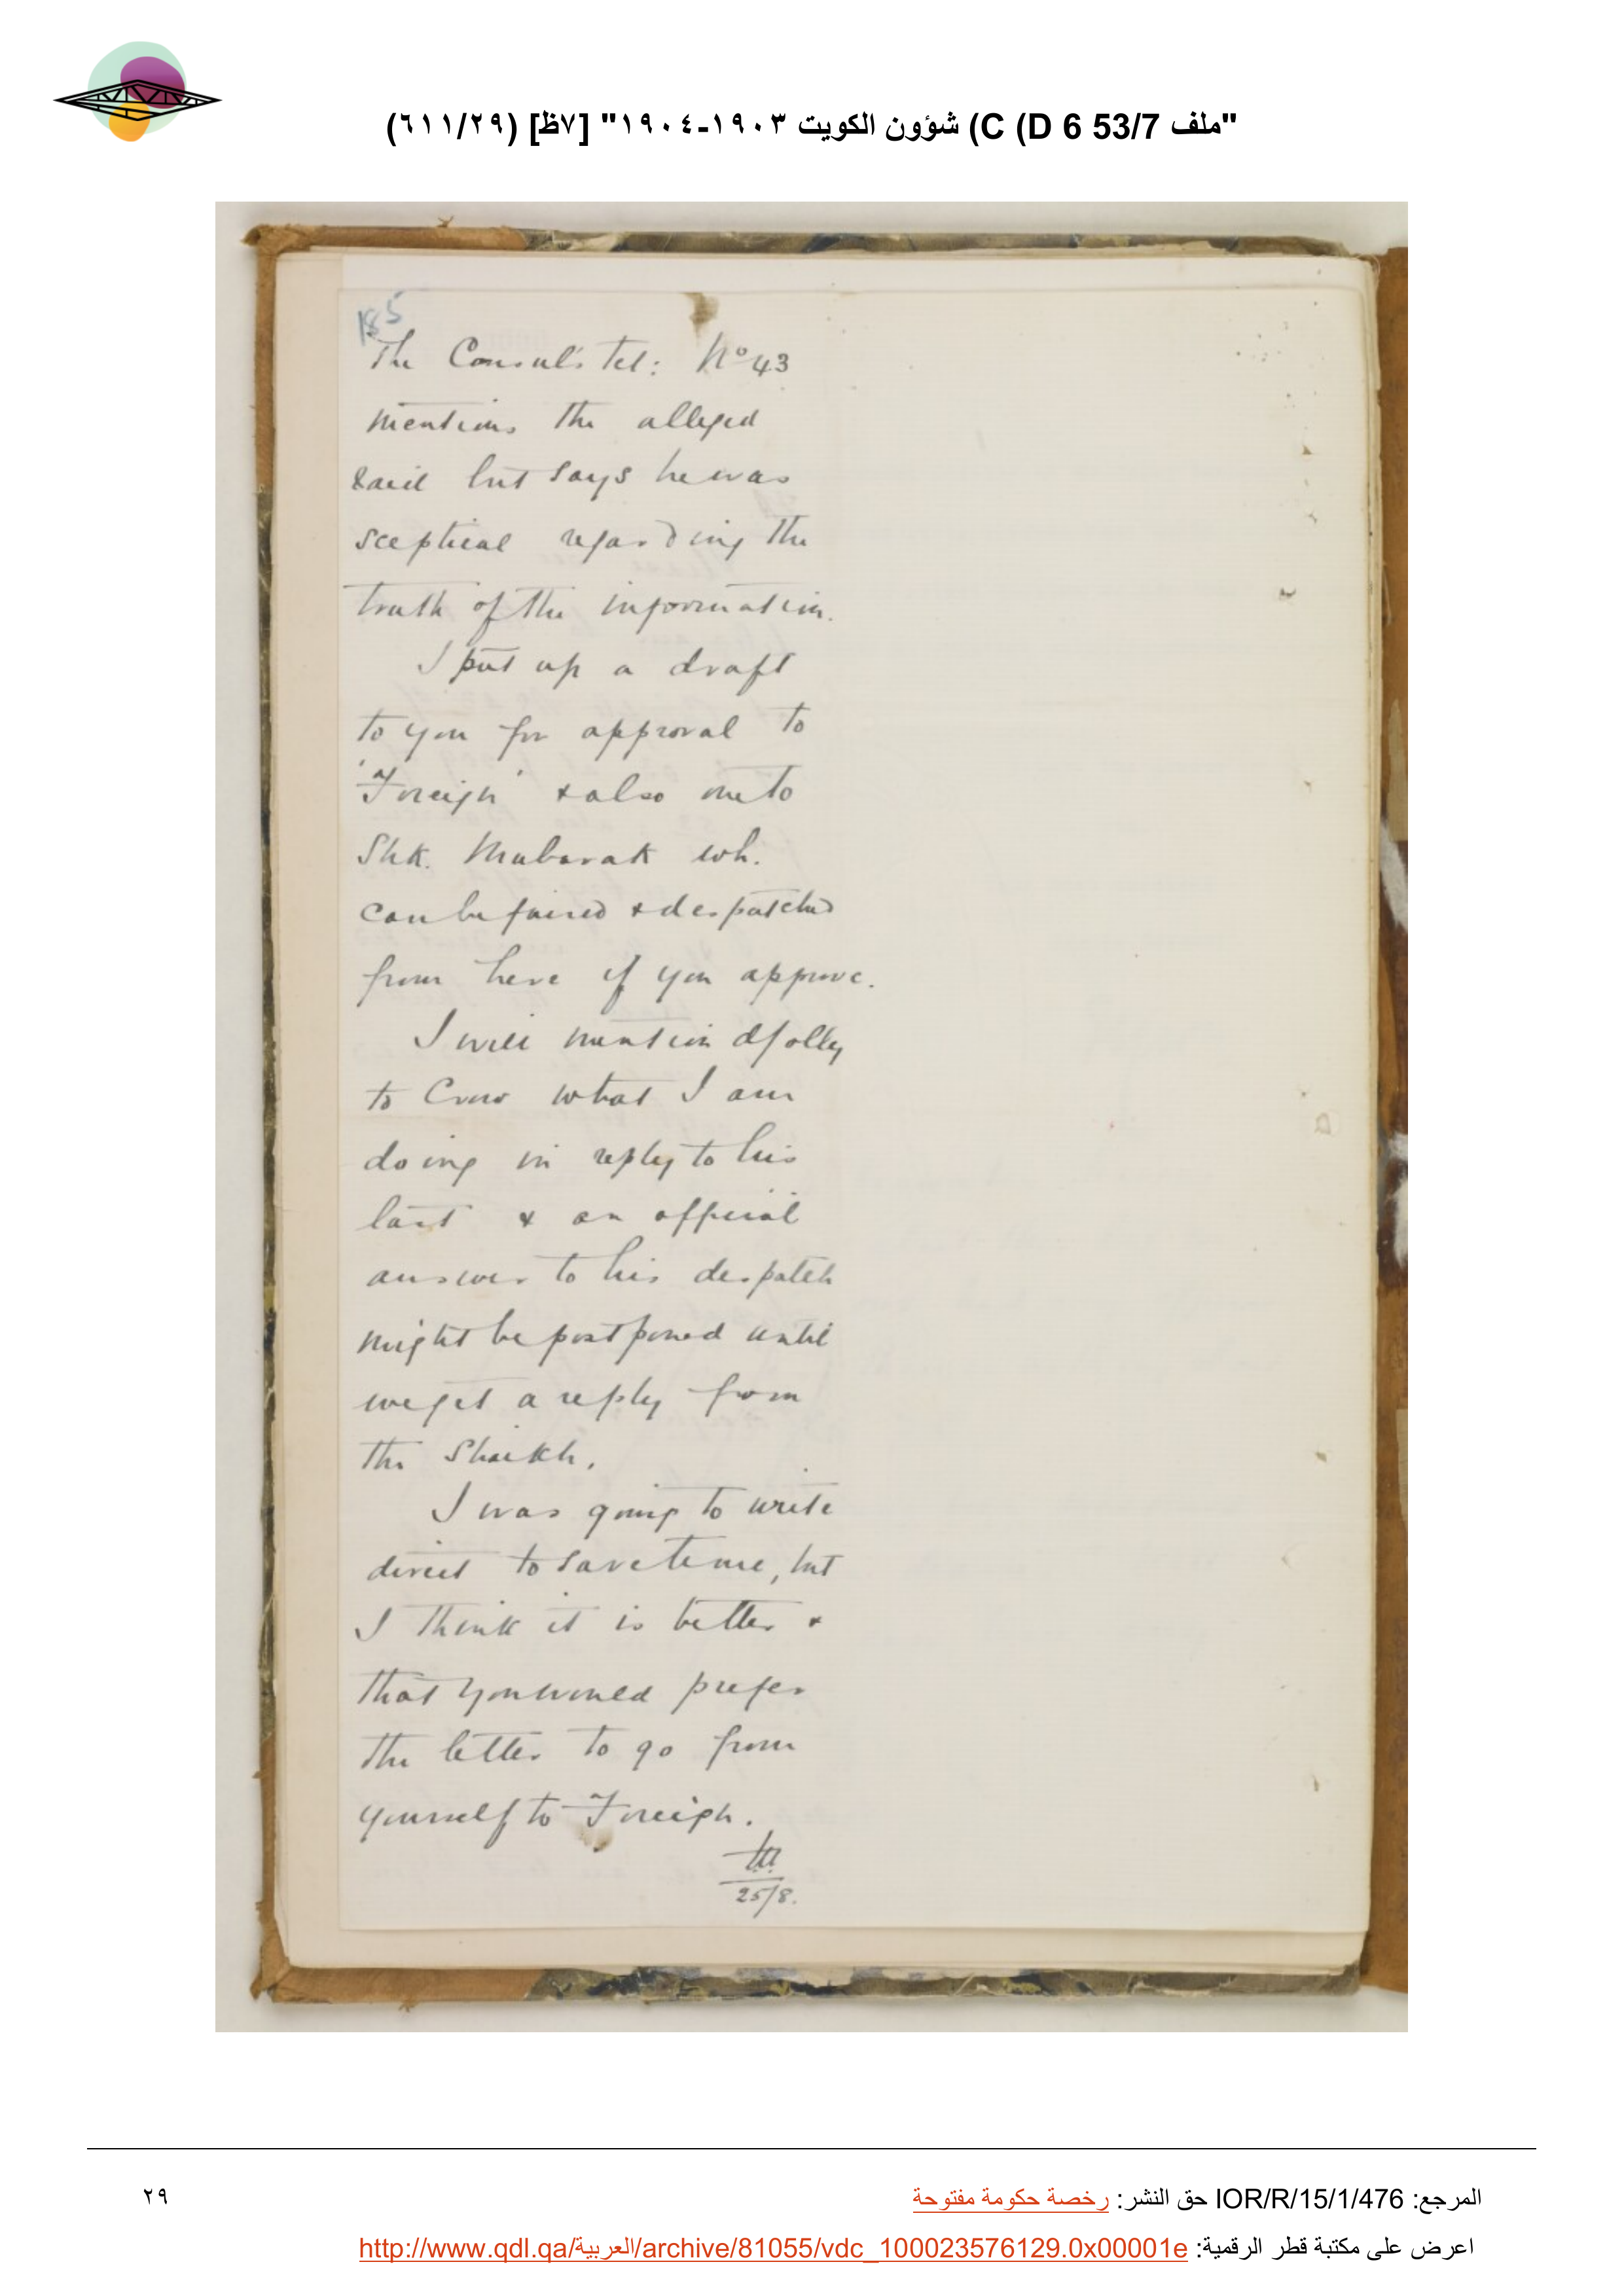 "ملف 53/7 C (D 6) شؤون الكويت ١٩٠٣-١٩٠٤" [٧ظ] (٦١١/٢٩)
185
The Consul's Tel: No 43
mentions the alleged
raid but says he was
sceptical regarding the
truth of the information.
I put up a draft
to you for approval to
'Foreign' & also one to
Shk. Mubarak wh.
can be faired & despatched
from here if you approve.
I will mention d/olly
to Crow what I am
doing in reply to his
last & an official
answer to his despatch
might be postponed until
we get a reply from
the Shaikh.
I was going to write
direct to save time, but
I think it is better &
that you would prefer
the letter to go from
yourself to Foreign.
25/8.
المرجع: IOR/R/15/1/476 حق النشر: رخصة حكومة مفتوحة
٢٩
اعرض على مكتبة قطر الرقمية: http://www.qdl.qa/العربية/archive/81055/vdc_100023576129.0x00001e